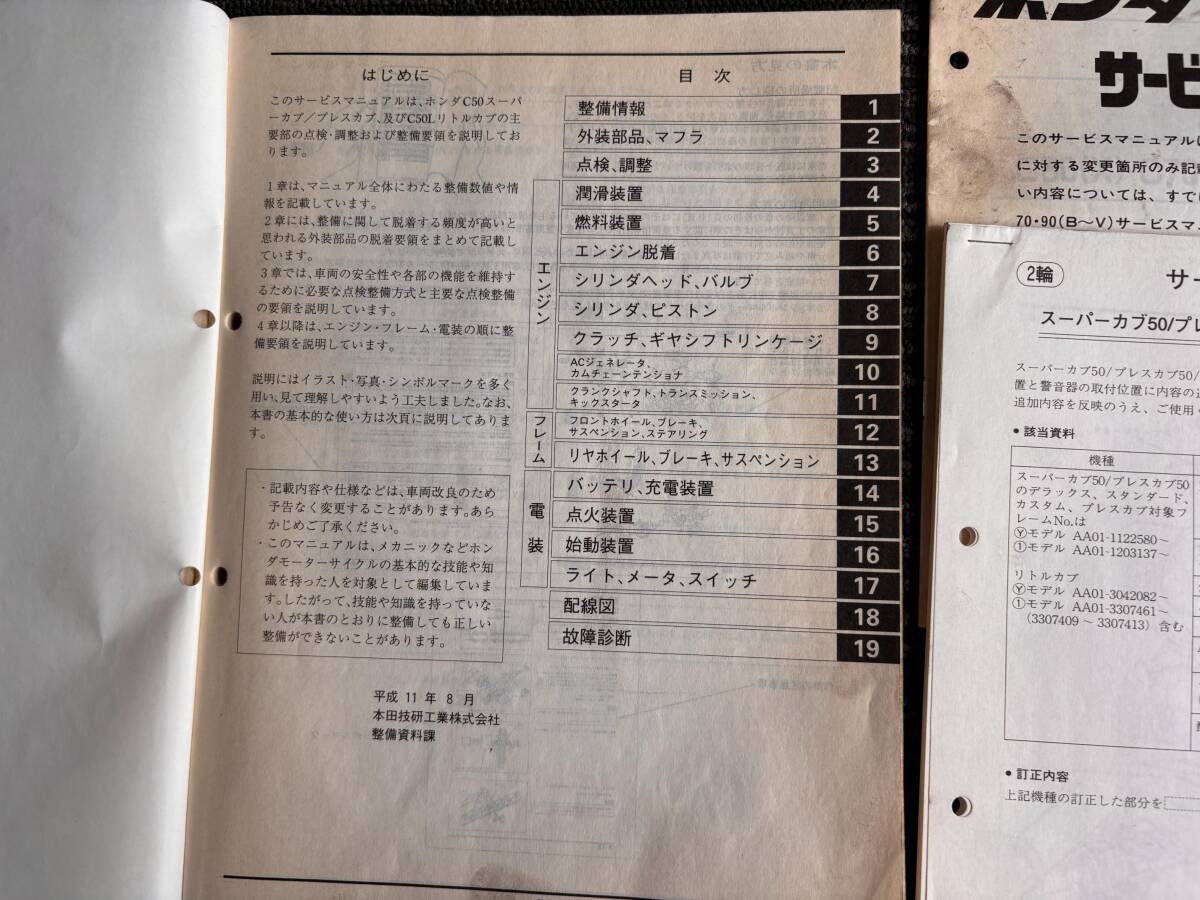 はじめに
このサービスマニュアルは、ホンダC50スーパ
ーカブ／プレスカブ、及びC50Lリトルカブの主
要部の点検・調整および整備要領を説明してお
ります。
1章は、マニュアル全体にわたる整備数値や情
報を記載しています。
2章には、整備に関して脱着する頻度が高いと
思われる外装部品の脱着要領をまとめて記載し
ています。
3章では、車両の安全性や各部の機能を維持す
るために必要な点検整備方式と主要な点検整備
の要領を説明しています。
4章以降は、エンジン・フレーム・電装の順に整
備要領を説明しています。
説明にはイラスト・写真・シンボルマークを多く
用い、見て理解しやすいよう工夫しました。なお、
本書の基本的な使い方は次頁に説明してありま
す。
・記載内容や仕様などは、車両改良のため
予告なく変更することがあります。あら
かじめご了承ください。
・このマニュアルは、メカニックなどホン
ダモーターサイクルの基本的な技能や知
識を持った人を対象として編集していま
す。したがって、技能や知識を持っていな
い人が本書のとおりに整備しても正しい
整備ができないことがあります。
平成11年8月
本田技研工業株式会社
整備資料課
目次
整備情報 1
外装部品、マフラ 2
点検、調整 3
エンジン
潤滑装置 4
燃料装置 5
エンジン脱着 6
シリンダヘッド、バルブ 7
シリンダ、ピストン 8
クラッチ、ギヤシフトリンケージ 9
ACジェネレータ、
カムチェーンテンショナ 10
クランクシャフト、トランスミッション、
キックスタータ 11
フレーム
フロントホイール、ブレーキ、
サスペンション、ステアリング 12
リヤホイール、ブレーキ、サスペンション 13
電装
バッテリ、充電装置 14
点火装置 15
始動装置 16
ライト、メータ、スイッチ 17
配線図 18
故障診断 19
ホンダ
サービ
このサービスマニュアルは
に対する変更箇所のみ記
い内容については、すで
70・90(B〜V)サービスマニ
2輪
サー
スーパーカブ50/プレ
スーパーカブ50/プレスカブ50/
置と警音器の取付位置に内容の
追加内容を反映のうえ、ご使用
・該当資料
機種
スーパーカブ50/プレスカブ50
のデラックス、スタンダード、
カスタム、プレスカブ対象フ
レームNo.は
Ⓨモデル AA01-1122580〜
①モデル AA01-1203137〜
リトルカブ
Ⓨモデル AA01-3042082〜
①モデル AA01-3307461〜
（3307409〜3307413）含む
・訂正内容
上記機種の訂正した部分を